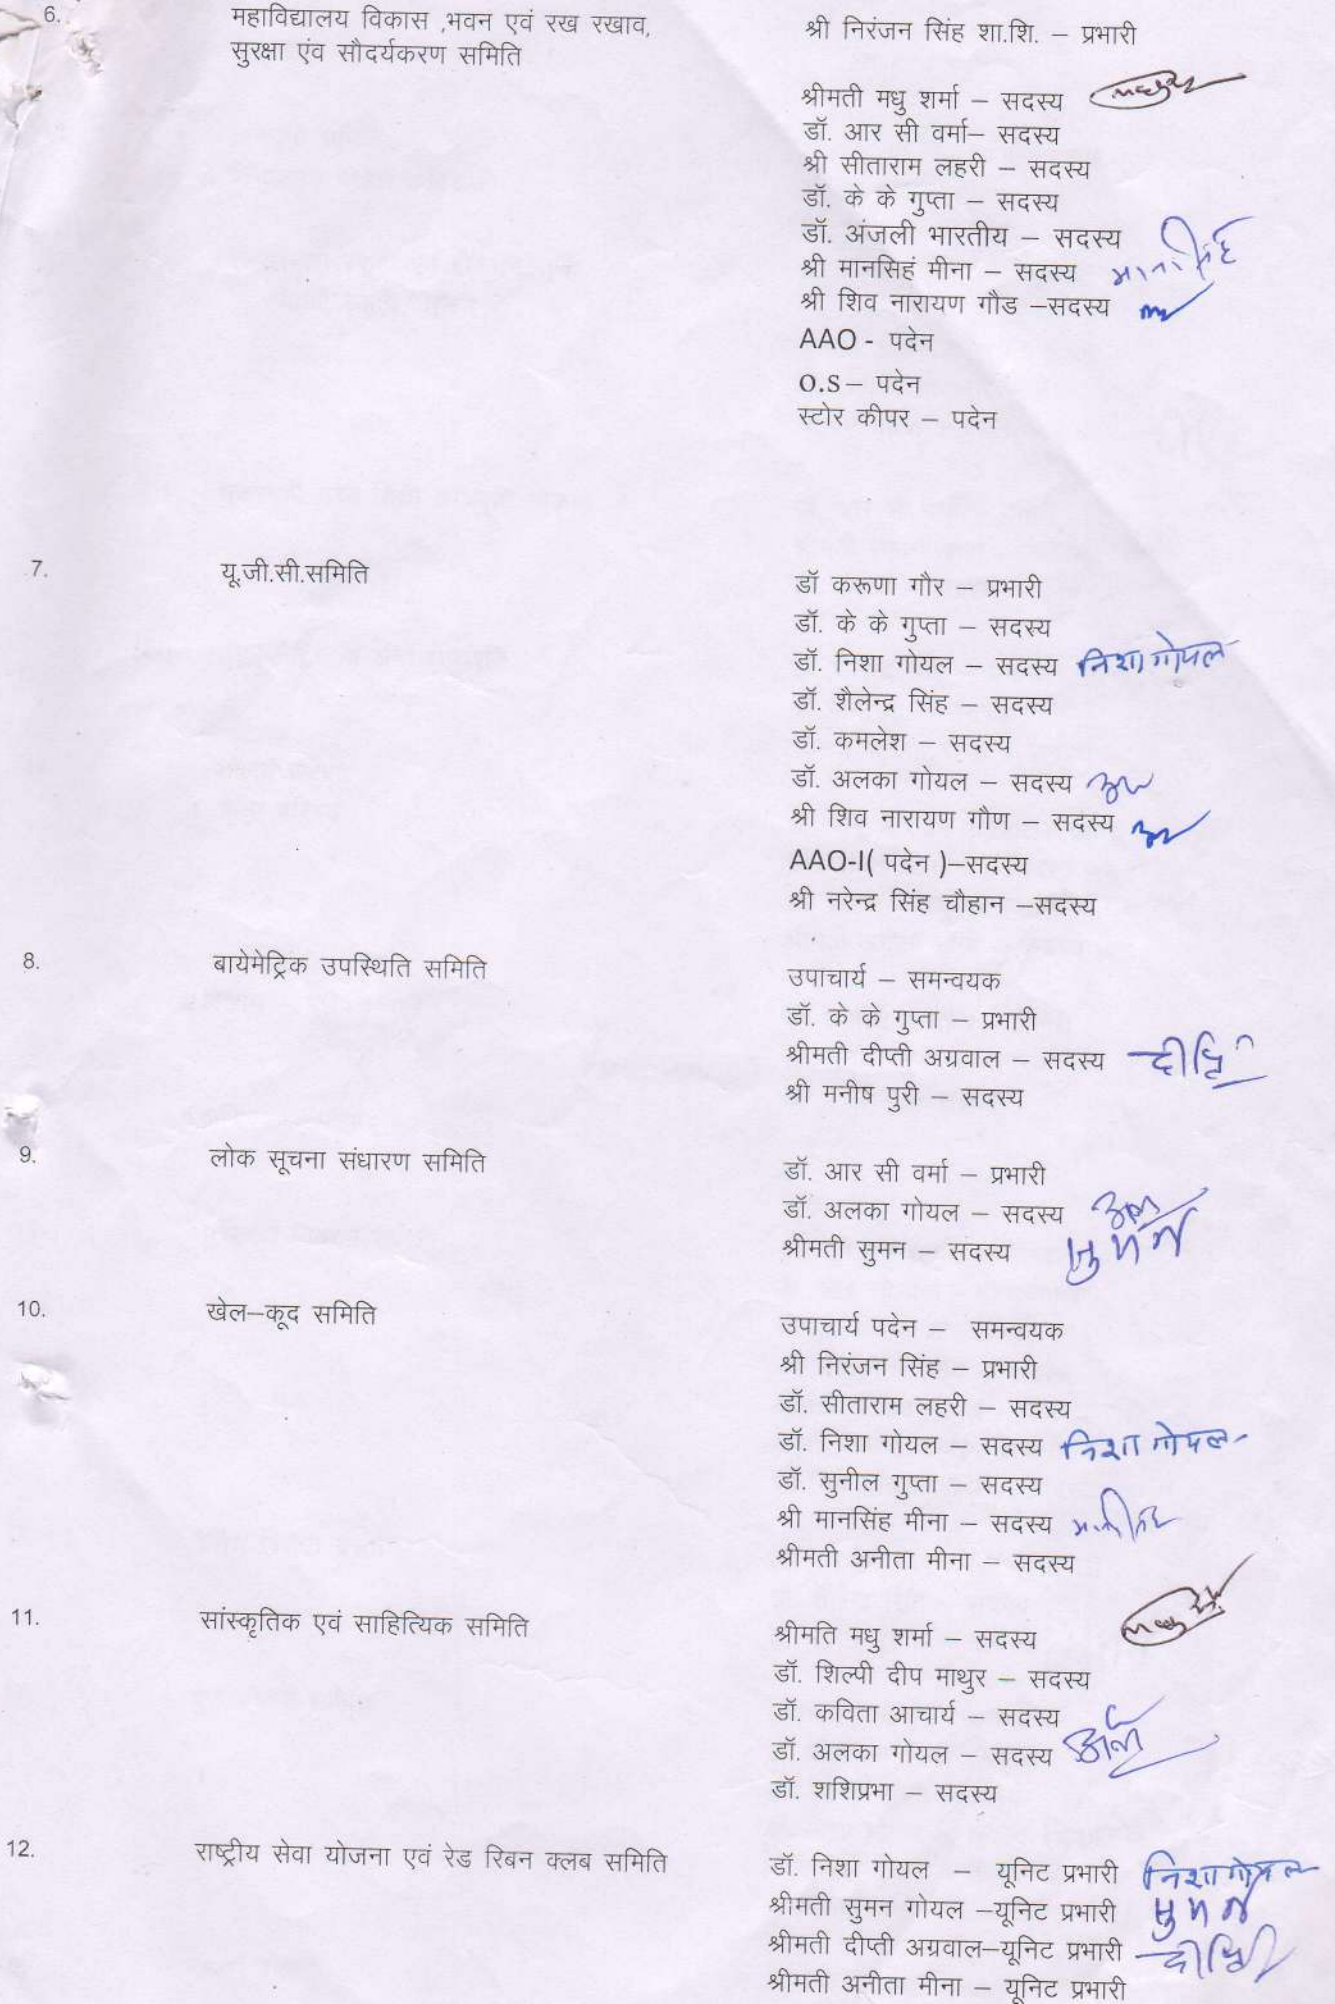 6.
महाविद्यालय विकास ,भवन एवं रख रखाव,
सुरक्षा एंव सौदर्यकरण समिति
श्री निरंजन सिंह शा.शि. – प्रभारी
श्रीमती मधु शर्मा – सदस्य
डॉ. आर सी वर्मा– सदस्य
श्री सीताराम लहरी – सदस्य
डॉ. के के गुप्ता – सदस्य
डॉ. अंजली भारतीय – सदस्य
श्री मानसिहं मीना – सदस्य मानसिंह
श्री शिव नारायण गौड –सदस्य
AAO - पदेन
O.S– पदेन
स्टोर कीपर – पदेन
7.
यू.जी.सी.समिति
डॉ करूणा गौर – प्रभारी
डॉ. के के गुप्ता – सदस्य
डॉ. निशा गोयल – सदस्य निशा गोयल
डॉ. शैलेन्द्र सिंह – सदस्य
डॉ. कमलेश – सदस्य
डॉ. अलका गोयल – सदस्य
श्री शिव नारायण गौण – सदस्य
AAO-I( पदेन )–सदस्य
श्री नरेन्द्र सिंह चौहान –सदस्य
8.
बायेमेट्रिक उपस्थिति समिति
उपाचार्य – समन्वयक
डॉ. के के गुप्ता – प्रभारी
श्रीमती दीप्ती अग्रवाल – सदस्य दीप्ति
श्री मनीष पुरी – सदस्य
9.
लोक सूचना संधारण समिति
डॉ. आर सी वर्मा – प्रभारी
डॉ. अलका गोयल – सदस्य
श्रीमती सुमन – सदस्य सुमन
10.
खेल–कूद समिति
उपाचार्य पदेन – समन्वयक
श्री निरंजन सिंह – प्रभारी
डॉ. सीताराम लहरी – सदस्य
डॉ. निशा गोयल – सदस्य निशा गोयल
डॉ. सुनील गुप्ता – सदस्य
श्री मानसिंह मीना – सदस्य मानसिंह
श्रीमती अनीता मीना – सदस्य
11.
सांस्कृतिक एवं साहित्यिक समिति
श्रीमति मधु शर्मा – सदस्य
डॉ. शिल्पी दीप माथुर – सदस्य
डॉ. कविता आचार्य – सदस्य
डॉ. अलका गोयल – सदस्य
डॉ. शशिप्रभा – सदस्य
12.
राष्ट्रीय सेवा योजना एवं रेड रिबन क्लब समिति
डॉ. निशा गोयल – यूनिट प्रभारी निशा गोयल
श्रीमती सुमन गोयल –यूनिट प्रभारी सुमन
श्रीमती दीप्ती अग्रवाल–यूनिट प्रभारी दीप्ति
श्रीमती अनीता मीना – यूनिट प्रभारी